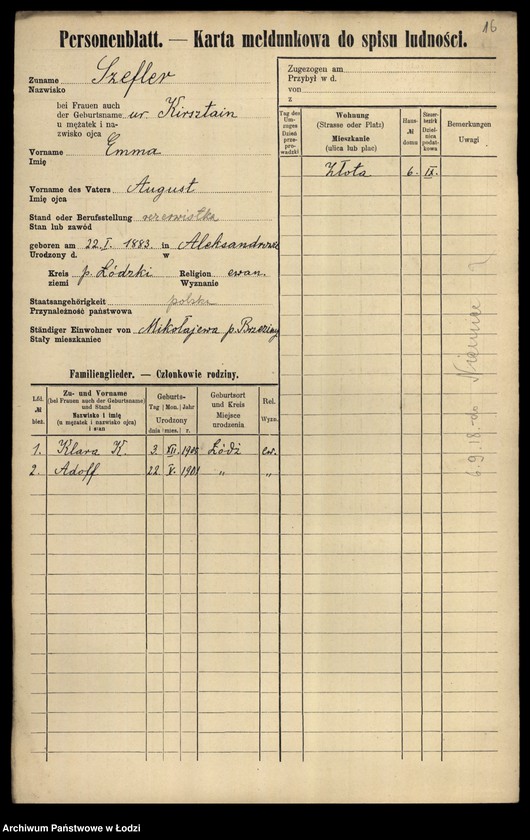 16
Personenblatt. — Karta meldunkowa do spisu ludności.
Zuname Szefler
Nazwisko
bei Frauen auch
der Geburtsname ur. Kirsztain
u mężatek i na-
zwisko ojca
Vorname Emma
Imię
Vorname des Vaters August
Imię ojca
Stand oder Berufsstellung rezerwistka
Stan lub zawód
geboren am 22. I. 1883. in Aleksandrow
Urodzony d. w
Kreis p. Łódzki Religion ewan.
ziemi Wyznanie
Staatsangehörigkeit polska
Przynależność państwowa
Ständiger Einwohner von Mikołajewa p. Brzeziny
Stały mieszkaniec
Zugezogen am
Przybył w d.
von
z
Tag des Um-zuges Dzień prze-prowadzki
Wohnung (Strasse oder Platz) Mieszkanie (ulica lub plac)
Haus-№ domu
Steuer-bezirk Dzielnica podatkowa
Bemerkungen Uwagi
Złota 6. IX.
6.9.18. do Niemiec
Familienglieder. — Członkowie rodziny.
Lfd. № bież.
Zu- und Vorname (bei Frauen auch der Geburtsname) und Stand Nazwisko i imię (u mężatek i nazwisko ojca) i stan
Geburts- Tag Mon. Jahr Urodzony dnia mies. r.
Geburtsort und Kreis Miejsce urodzenia
Rel. Wyzn.
1. Klara K. 3. XII. 1905 Łódź ew.
2. Adolf 22. V. 1901 " "
Archiwum Państwowe w Łodzi